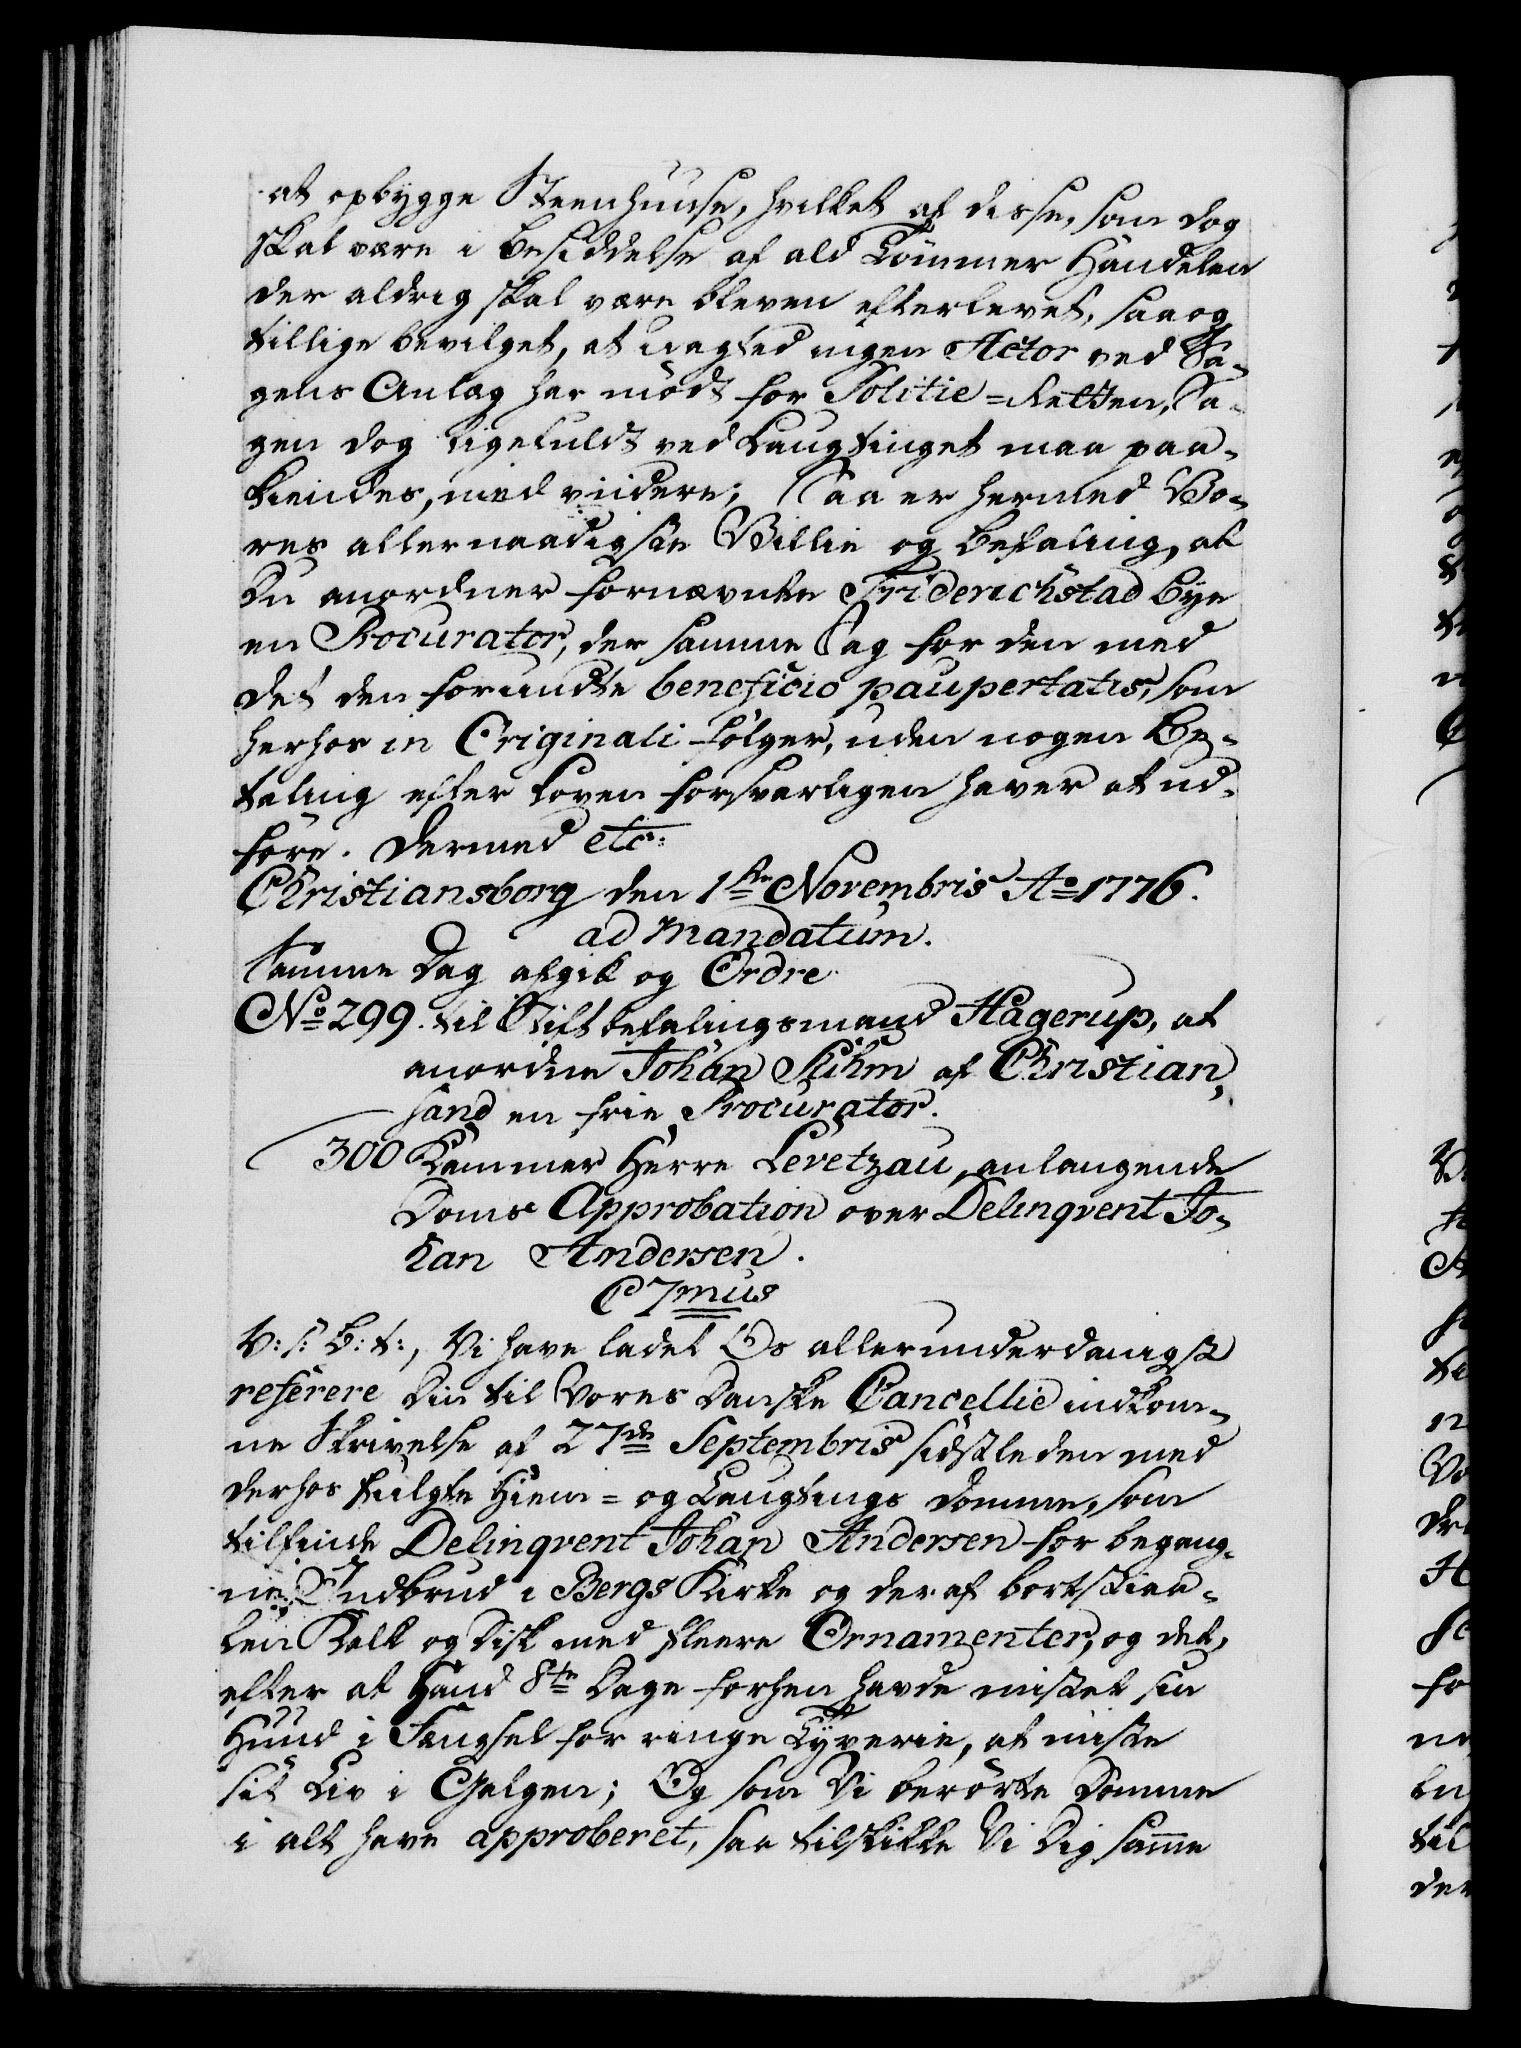 at opbygge Steenhuuse, hvilket af disse, som dog
skal være i Besiddelse af ald Tømmer Handelen
der aldrig skal være bleven efterlevet, saa og
tillige bevilget, at uagted ingen Actor ved Sa-
gens Anlæg har mødt for Politie=Retten, Sa-
gen dog ligefuldt ved Laugtinget maa paa-
kiendes, med videre; Saa er hermed Vo-
res allernaadigste Villie og Befaling, at
Du anordner fornævnte Friderichstad Bye
en Procurator, der samme Sag for den med
det den forundte beneficio paupertatis, som
herhos in Originali følger, uden nogen Be-
taling efter Loven forsvarligen haver at ud-
føre. Dermed etc:
Christiansborg den 1ste Novembris Ao 1776.
ad Mandatum.
Samme Dag afgik og Ordre
No 299. til Stiftbefalingsmand Hagerup, at
anordne Johan Suhm af Christian-
sand en frie Procurator.
300 Kammer Herre Levetzau, anlangende
Doms Approbation over Delinqvent Jo-
han Andersen.
C7mus
V: S: B: t:, Vi have ladet Os allerunderdanigst
referere Din til Vores Danske Cancellie indkom-
ne Skrivelse af 27de Septembris sidstleden med
derhos fulgte Hiem= og Laugtings Domme, som
tilfinde Delinqvent Johan Andersen for begang-
ne Indbrud i Bergs Kirke og deraf bortstiaa-
len Kalk og Disk med fleere Ornamenter, og det,
efter at Hand 8te Dage forhen havde mistet sin
Huud i Fængsel for ringe Tyverie, at miste
sit Liv i Galgen; Og som Vi berørte Domme
i alt have approberet, saa tilskikke Vi Dig samme